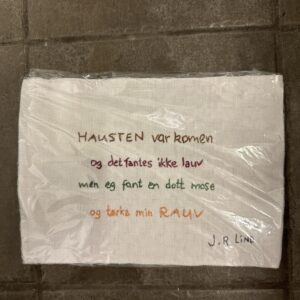 HAUSTEN var komen
og det fantes ikke lauv
men eg fant en dott mose
og tørka min RAUV
J.R LIND